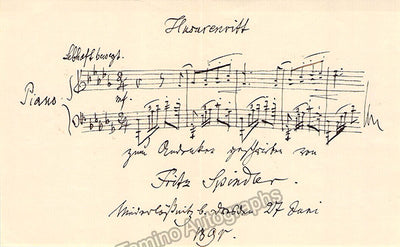 Husarenritt
Lebhaft bewegt.
Piano
mf.
zum Andenken geschrieben von
Fritz Spindler.
Niederlößnitz b. Dresden 27 Juni
189
Tamino Autographs